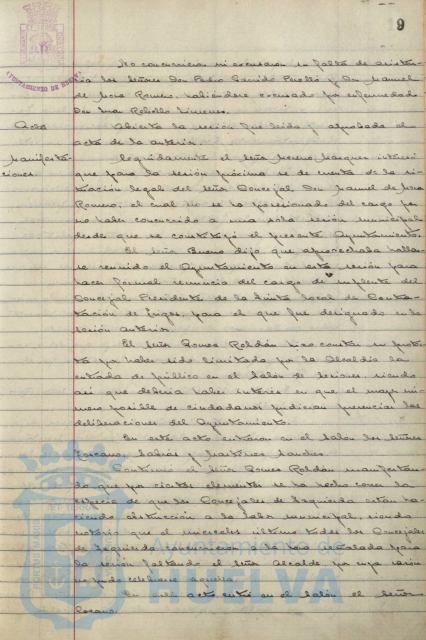 9
AYUNTAMIENTO DE HUELVA
No concurrieron ni excusaron su falta de asisten-
cia los señores Don Pedro Garrido Perelló y Don Manuel
de Mora Romero, habiéndose excusado por enfermedad
Don Juan Rebollo Jimenez.
Acta Abierta la sesión fue leida y aprobada el
acta de la anterior.
Manifesta- Seguidamente el señor Moreno Marquez interesó
ciones. que para la sesión próxima se dé cuenta de la si-
tuación legal del señor Concejal, Don Manuel de Mora
Romero, el cual no se ha posesionado del cargo por
no haber concurrido a una sola sesión municipal
desde que se constituyó el presente Ayuntamiento.
El señor Bueno dijo que aprovechaba hallar-
se reunido el Ayuntamiento en esta sesión para
hacer formal renuncia del cargo de suplente del
Concejal Presidente de la Junta local de Contra-
tación de trigos, para el que fue designado en la
sesión anterior.
El señor Gomez Roldán hizo constar su protes-
ta por haber sido limitada por la Alcaldía la
entrada de público en el salon de sesiones, siendo
así que debería haber interés en que el mayor nú-
mero posible de ciudadanos pudieran presenciar las
deliberaciones del Ayuntamiento.
En este acto entraron en el salon los señores
Toscano, y Martinez Sanchez.
Continuó el señor Gomez Roldán manifestan-
do que por ciertos elementos se ha hecho correr la
especie de que los Concejales de Izquierda estan ha-
ciendo obstrucción a la labor municipal, siendo
notorio que el miercoles último todos los Concejales
de Izquierda concurrieron a la hora señalada para
la sesión faltando el señor Alcalde, por cuya razón
no pudo celebrarse aquella.
En este acto entró en el salón el señor
Lozano.
Ayuntamiento de
HUELVA